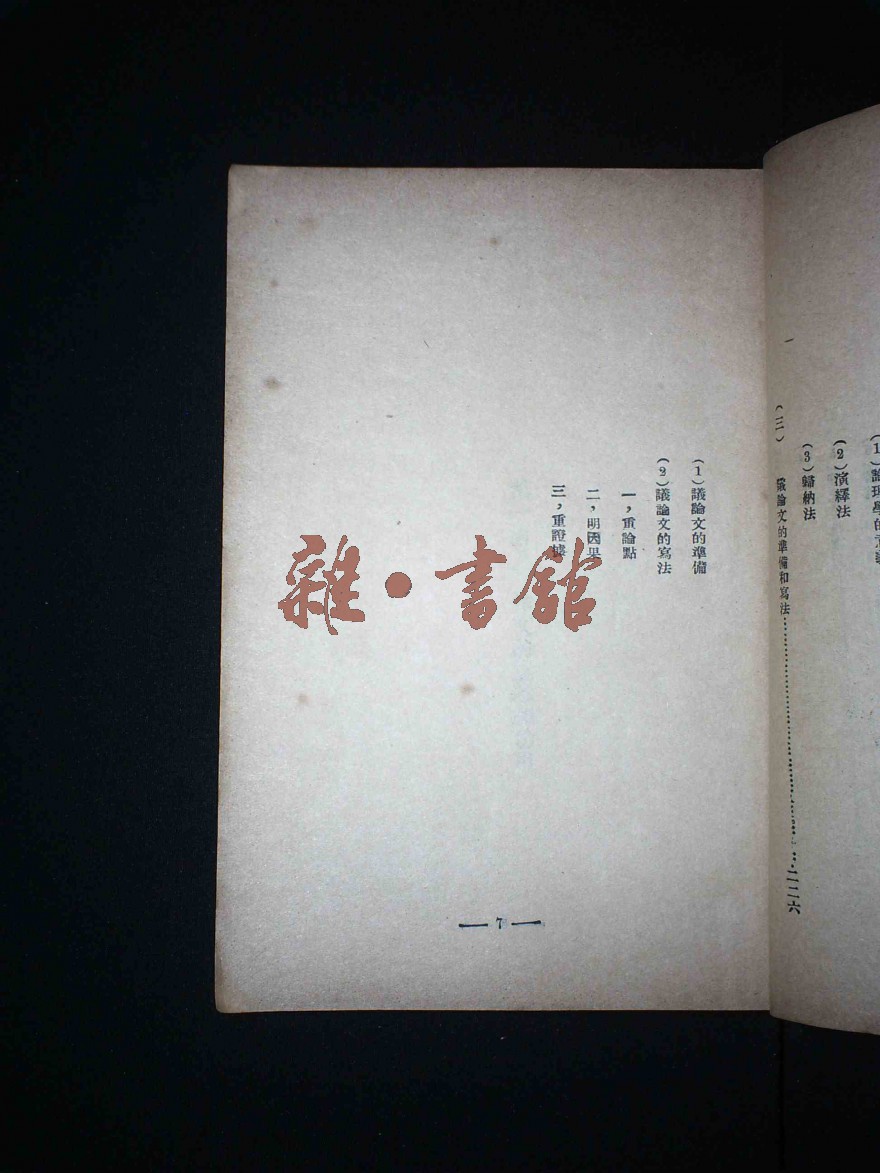 (1)論理學的意義
(2)演繹法
(3)歸納法
(三) 議論文的準備和寫法……二二六
(1)議論文的準備
(2)議論文的寫法
一，重論點
二，明因果
三，重證據
— 7 —
雜·書館